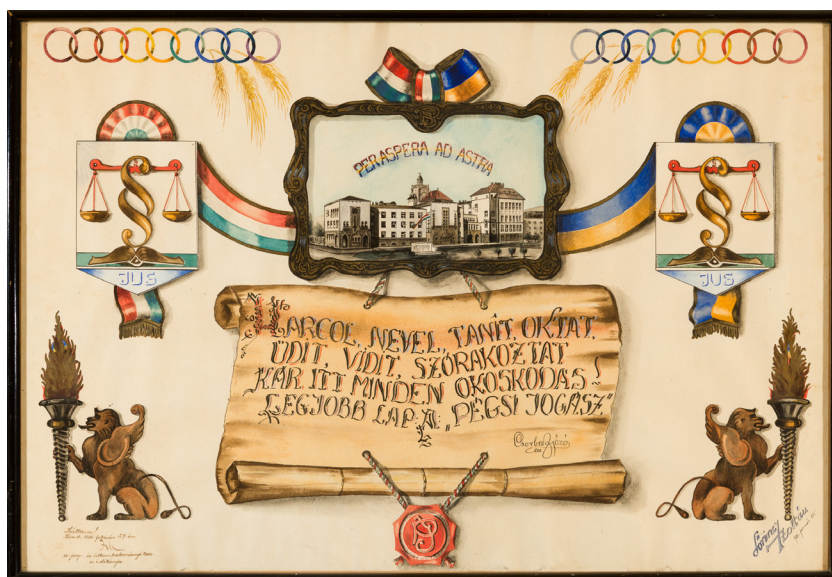 PER ASPERA AD ASTRA
JUS
JUS
HARCOL, NEVEL, TANÍT, OKTAT,
ÜDIT, VIDIT, SZÓRAKOZTAT
KÁR ITT MINDEN OKOSKODÁS!
LEGJOBB LAP A: „PÉCSI JOGÁSZ”
Csorba Győző
Lőrincz
Zoltán